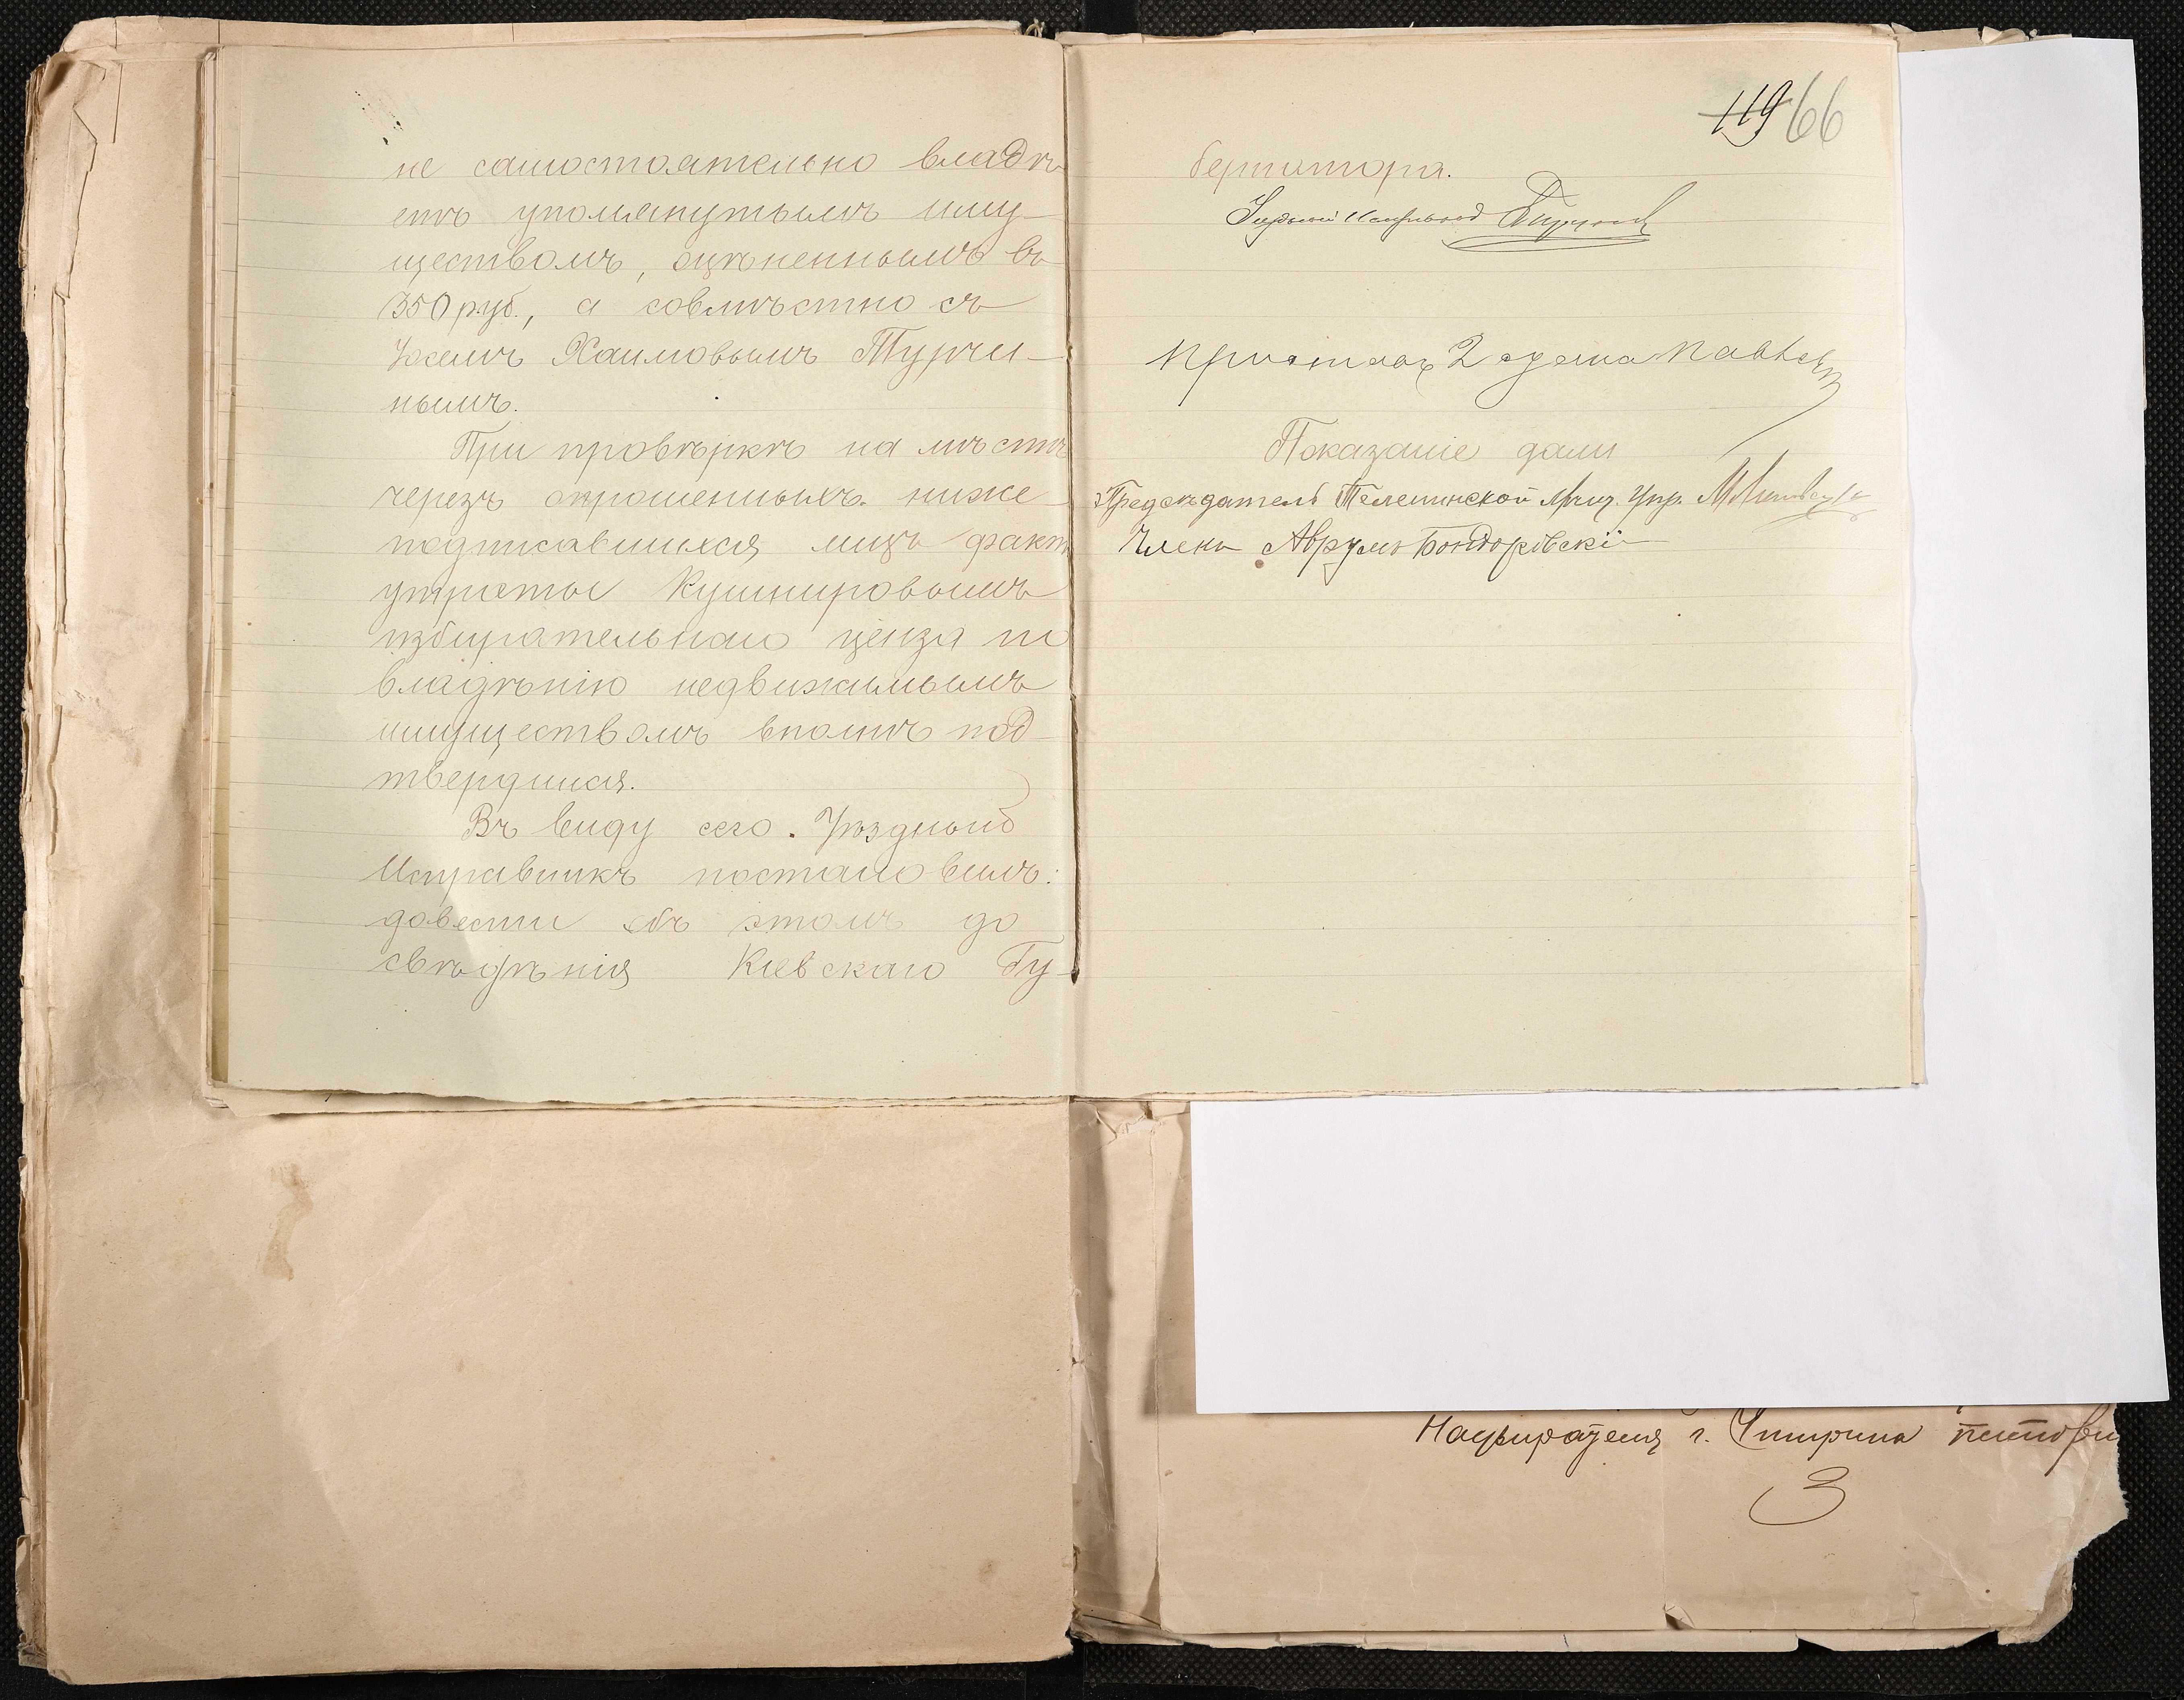 не самостоятельно владѣ-
етъ упомянутымъ иму-
ществомъ, оцѣненнымъ въ
350 руб., а совмѣстно съ
Хаимовымъ Турчи-
нымъ.
При провѣркѣ на мѣстѣ
черезъ опрошенныхъ ниже-
подписавшихся лицъ фактъ
утраты Кушнировымъ
избирательнаго ценза по
владѣнію недвижимымъ
имуществомъ вполнѣ под-
твердился.
Въ виду сего. Уѣздный
Исправникъ постановилъ:
довести объ этомъ до
свѣдѣнія Кіевскаго Гу-
119 66
бернатора.
Уѣздный Исправникъ
Приставъ 2 стана
Показаніе дали
Предсѣдатель Телепинской Мѣщ. Упр.
Членъ Аврумъ Бондоровскій
Надзирателя г.
3